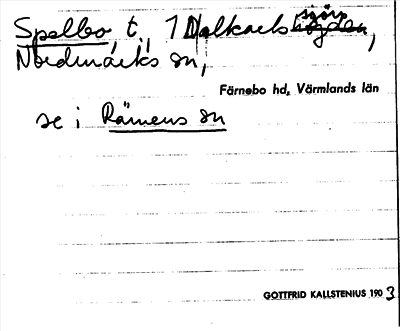 Spelbo, t. 1 Dalkarlssjöhögden,
Nordmarks sn,
Färnebo hd, Värmlands län
se i Rämens sn
GOTTFRID KALLSTENIUS 1903